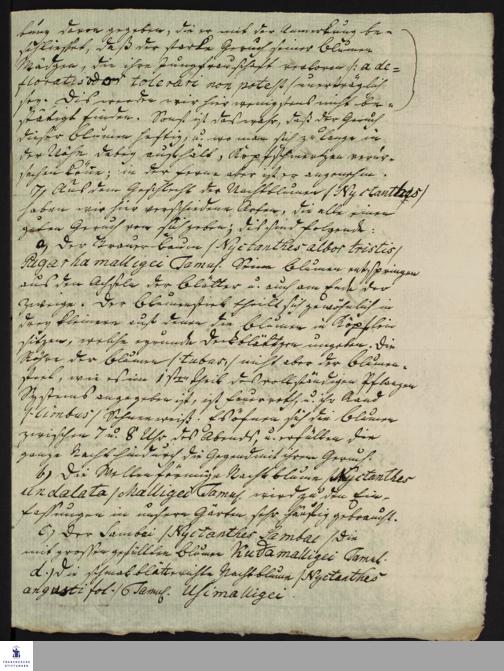 bung davon gegeben, die er mit der Anmerkung be-
schliesset, daß der starke Geruch seiner Blumen
Mädgen, die ihre Jungfrauschaft verloren /: a de-
floratis odor tolerari non potest / unerträglich
sey. Dis werden wir hier wenigstens nicht be-
stätigt finden. Sonst ist das wahr, daß der Geruch
dieser Blumen heftig, u. wo man sich zu lange in
der Nähe dabey aufhält, Kopfschmertzen verur-
sachen könne; in der ferne aber ist er angenehm.
7) Aus dem Geschlecht der Nachtblumen /:Nyctanthes/
haben wir hier verschiedene Arten, die alle einen
guten Geruch von sich geben; dis sind folgende:
a) Der Trauer Baum /Nyctanthes arbor tristis/
Pagarhamalligei Tamul. Seine Blumen entspringen
aus den Achseln der Blätter u. auch am Ende der
Zweige. Der Blumenstiel theilt sich gewöhnlich in
drey kleinere auf denen die Blumen in Köpflein
sitzen, welche runde Deckblättgen umgeben. Die
Röhre der Blumen /tubus/ nicht aber der Blumen-
stiel, wie es im 1sten Theil des vollständigen Pflanzen
Systems angegeben ist, ist feuerroth, u. ihr Rand
/:limbus/ Schneeweiß. Es öfnen sich die Blumen
zwischen 7 u. 8 Uhr, des Abends, u. erfüllen die
ganze Nacht hindurch die Gegend mit ihrem Geruch.
b) Die Wellenförmige Nacht blume /Nyctanthes
undulata / Malligei Tamul. wird zu den Ein-
fassungen in unsern Gärten sehr häufig gebraucht.
c) Der Sambai /Nyctanthes Sambac / die
mit grossen gefüllten Blumen Kudamalligei Tamul.
d.) Die schmalblätterichte Nachtblume /Nyctanthes
angustifol. / Tamul. Usimalligei
FRANCKESCHE
STIFTUNGEN